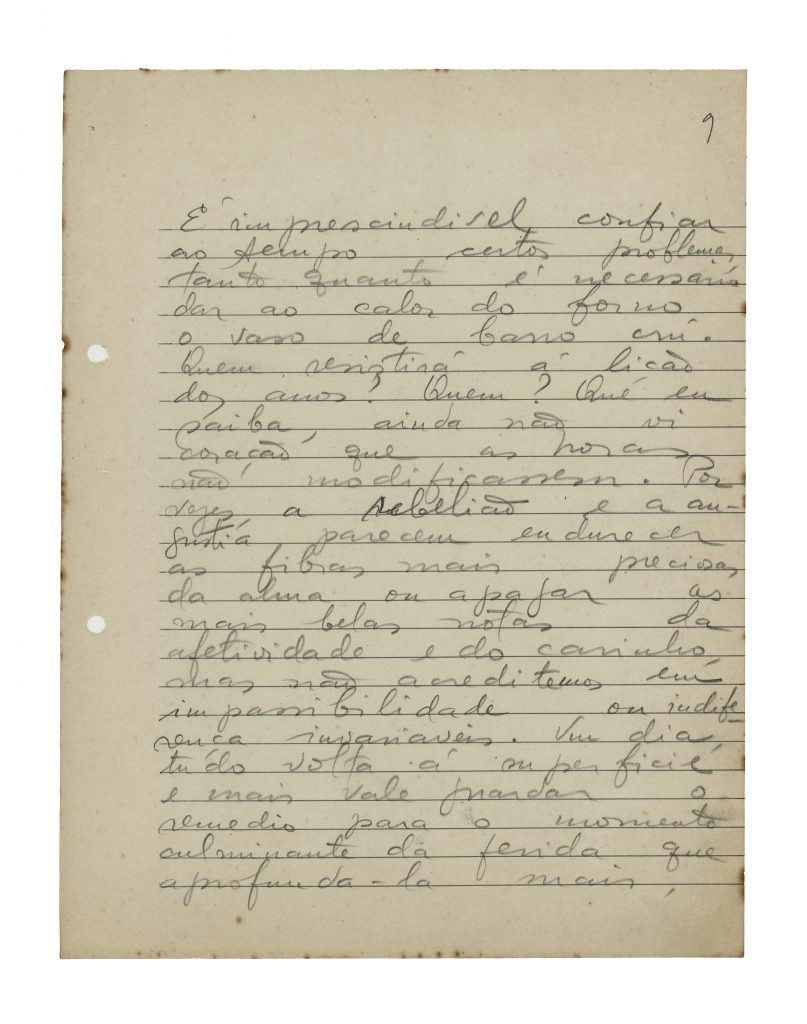 9
É imprescindivel confiar
ao tempo certos problemas,
tanto quanto é necessario
dar ao calor do forno
o vaso de barro crú.
Quem resistirá á licão
dos anos? Quem? Qué eu
saiba, ainda não vi
coração que as horas
não modificassem. Por
vezes a rebelião e a an-
gustiá parecem endurecer
as fibras mais preciosas
da alma ou apagar as
mais belas notas da
afetividade e do carinho,
mas não acreditemos em
impassibilidade ou indife-
rença invariaveis. Um dia,
tudo volta á superficie
e mais vale guardar o
remedio para o momento
culminante da ferida que
aprofunda-la mais,